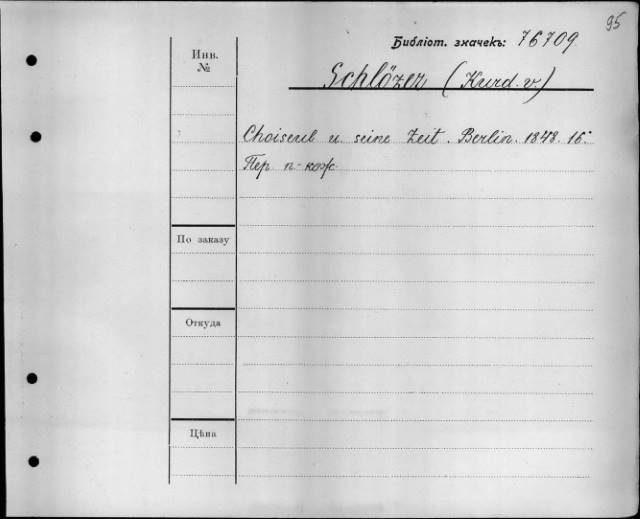 95
Библіот. значекъ: 76709.
Инв.
№
Schlözer (Kurd. v.)
Choiseul u. seine Zeit. Berlin. 1848. 16°
Пер. п-кож.
По заказу
Откуда
Цѣна